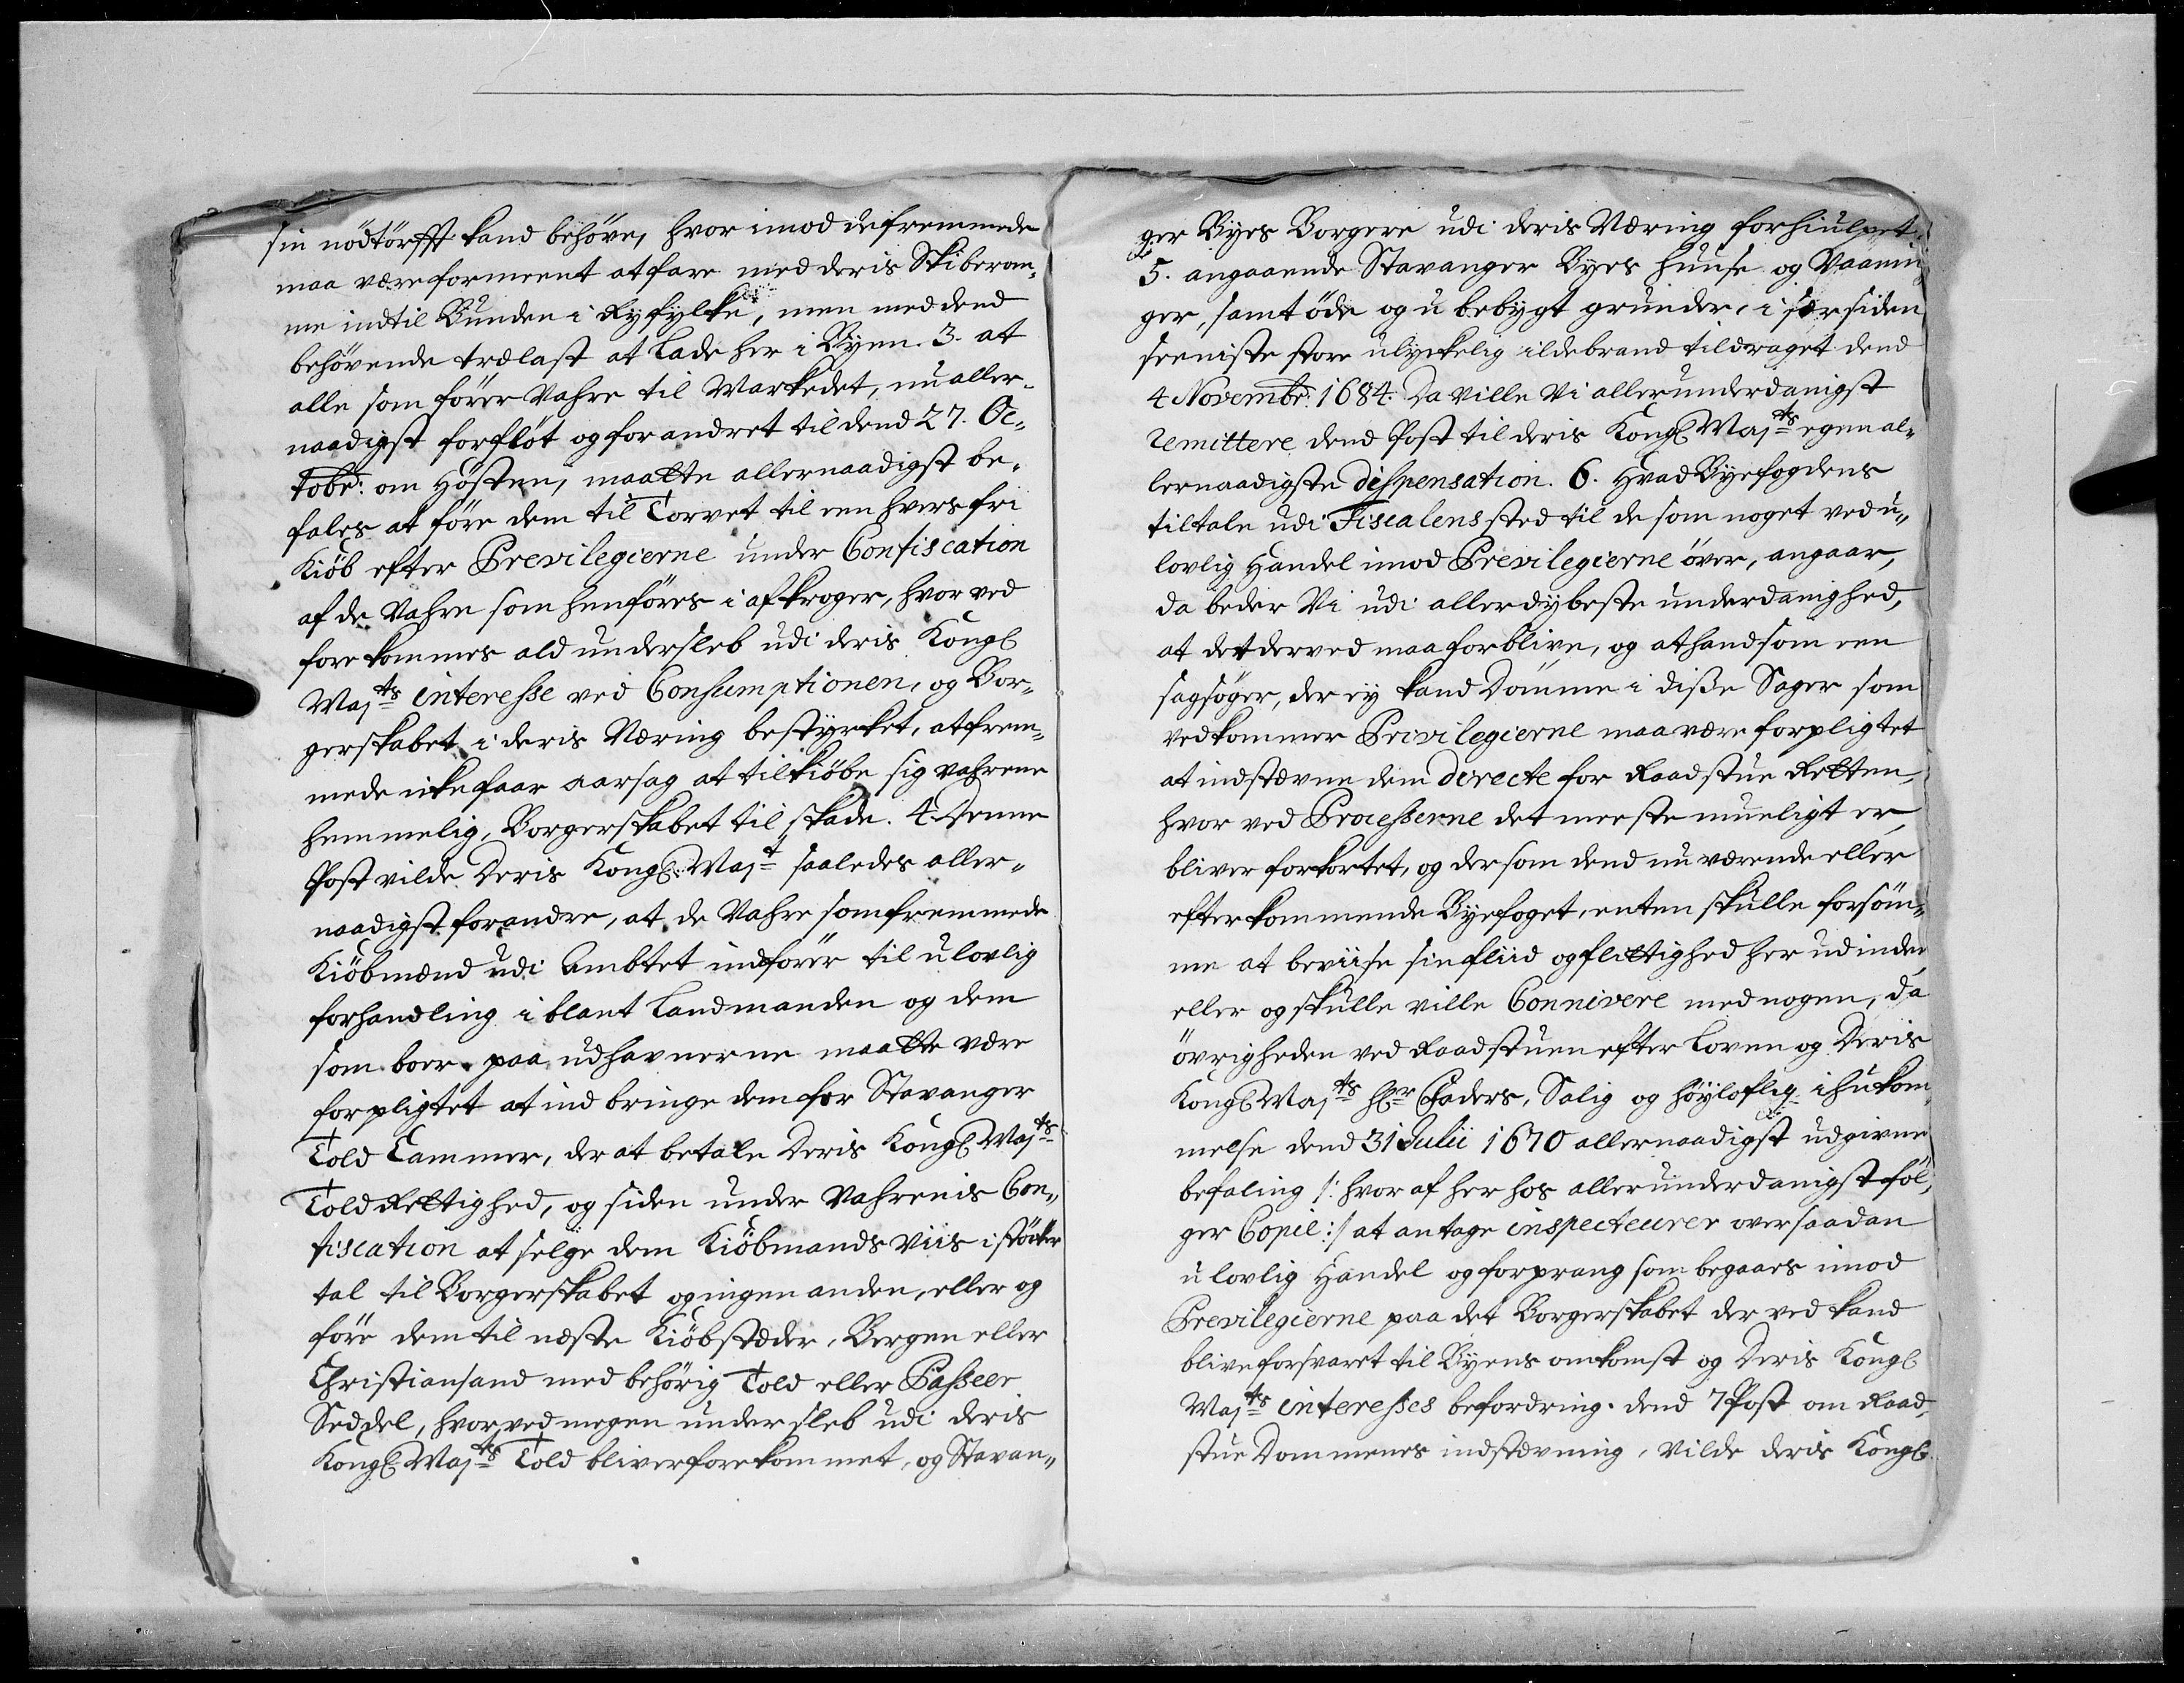 sin nödtörfft kand behöve, hvor imod de fremmede
maa være formeent at fare med deris Skiberom„
me indtil Bunden i Ryfylke, men med dend
behövende trælast at lade her i Byen. 3. at
alle som förer Vahre til Markedet, nu aller„
naadigst forflöt og forandret til dend 27. Oc„
tobr: om Hösten, maatte allernaadigst be„
fales at före dem til Torvet til een hvers fri
Kiöb efter Previlegierne under Confiscation
af de Vahre som henföres i afkroger, hvor ved
forekommes ald undersleb udi deris Kongl
Majts interesse ved Consumptionen, og Bor„
gerskabet i deris Næring bestyrket, at frem„
mede icke faar aarsag at tilkiöbe sig vahrene
hemmelig, Borgerskabet til skade. 4 Denne
Post vilde Deris Kongl. Majt saaledes aller„
naadigst forandre, at de Vahre som fremmede
Kiöbmænd udi Ambtet indförer til ulovlig
forhandling i blant Landmanden og dem
som boer paa udhavnerne maatte være
forpligtet at ind bringe dem for Stavanger
Told Cammer, der at betale Deris Kongl Majts
Told Rettighed, og siden under Vahrenis Con„
fiscation at selge dem Kiöbmands Viis i störker
tal til Borgerskabet og ingen anden, eller og
före dem til næste Kiöbstæder, Bergen eller
Christiansand med behörig Told eller Passeer
Seddel, hvor ved megen undersleb udi deris
Kongl Majts Told bliver forekommet, og Stavan„
ger Byes Borgere udi deris Næring forhiulpet.
5. angaaende Stavanger Byes Huuse og Vaanin„
ger, samt öde og u bebygt grunder, i sær siden
seeniste store ulyckelig ildebrand tildraget dend
4 Novembr. 1684. Da ville Vi allerunderdanigst
remittere dend Post til deris Kongl Majts egen al„
lernaadigste dispensation. 6. Hvad Byefogdens
tiltale udi Fiscalens sted til de som noget ved u„
lovlig Handel imod Previlegierne över, angaar,
da beder Vi udi allerdybeste underdanighed,
at det derved maa forblive, og at hand som een
sagsöger, der ey kand Dömme i disse Sager som
vedkommer Privilegierne maa være forpligtet
at indstævne dem directe for Raadstue Retten,
hvor ved Processerne det meeste mueligt er,
bliver forkortet, og dersom dend nu værende eller
efterkommende Byefoget, enten skulle forsöm„
me at beviise sin fliid og flittighed her udinden
eller og skulle ville Connivere med nogen, da
övrigheden ved Raadstuen efter Loven og Deris
Kongl Majts Hr Faders, Salig og höyloflig ihukom„
melse dend 31 Julii 1670 allernaadigst udgivne
befaling /: hvor af her hos allerunderdanigst föl„
ger Copie :/ at antage inspecteurer over saadan
u lovlig Handel og forprang som begaaes imod
Previlegierne paa det Borgerskabet der ved kand
blive forsvaret til Byens omkomst og Deris Kongl
Majts interesses befordring. dend 7 Post om Raad„
stue Dommenes indstævning, Vilde deris Kongl.